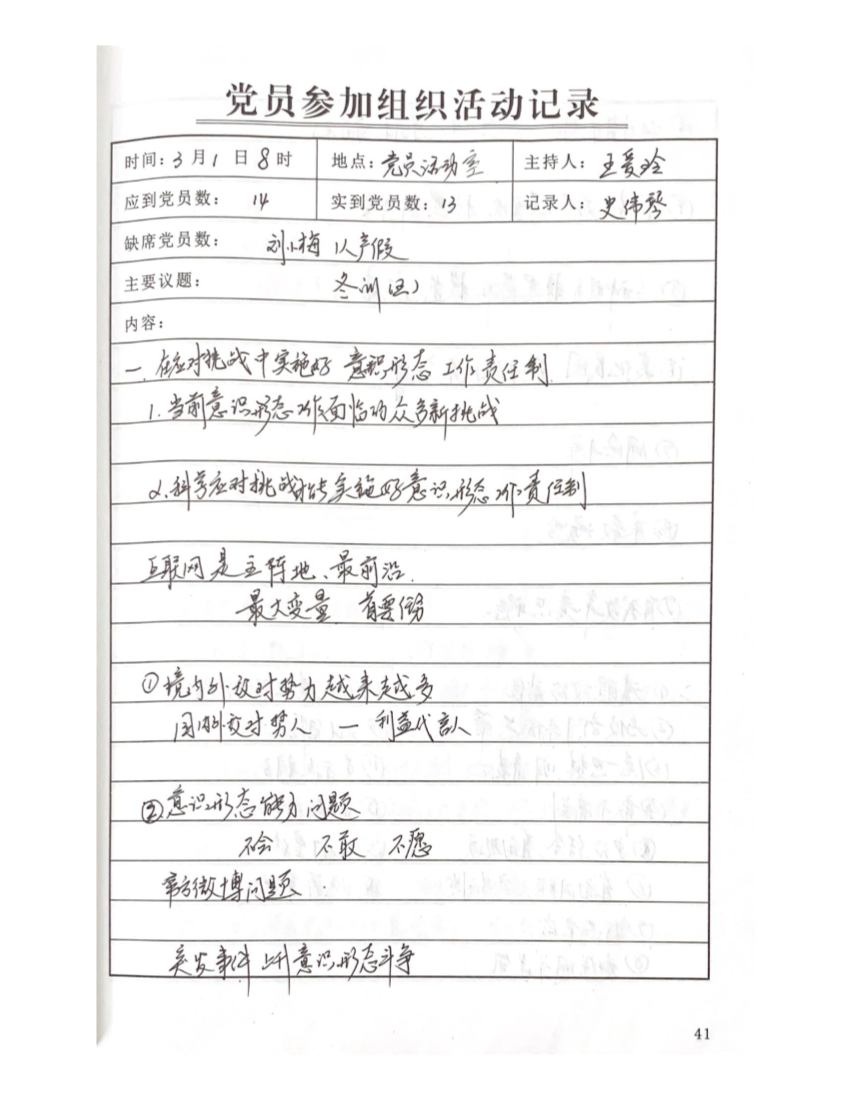 党员参加组织活动记录
时间:3月1日8时 地点:党员活动室 主持人:王爱玲
应到党员数: 14 实到党员数:13 记录人:史伟琴
缺席党员数: 刘小梅 休产假
主要议题: 冬训(四)
内容:
一.在应对挑战中实施好 意识形态 工作责任制
1.当前意识形态工作面临的众多新挑战
2.科学应对挑战才能实施好意识形态工作责任制
互联网是主阵地、最前沿.
最大变量 首要任务
①境内外敌对势力越来越多
国内外敌对势人 — 利益代言人
②意识形态能力问题
不会 不敢 不愿
官方微博问题.
突发事件上升意识形态斗争
41